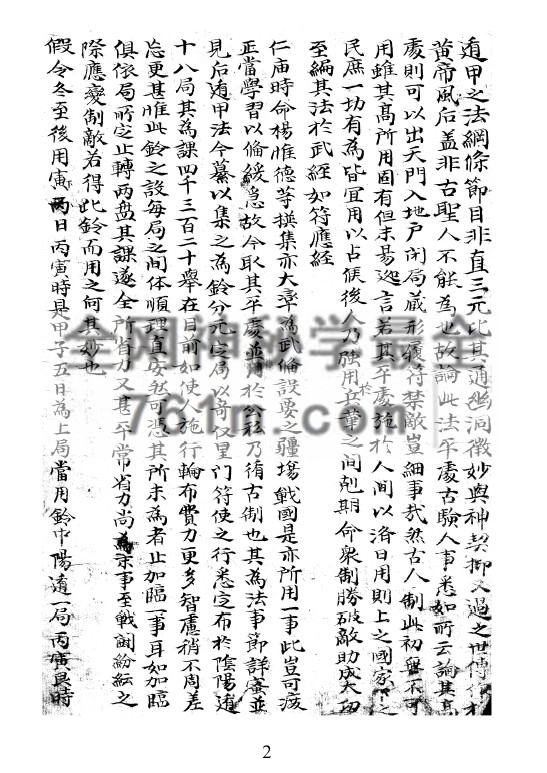 遁甲之法綱條節目非直三元比其通幽洞微妙與神契抑又過之世傳
黄帝風后盖非古聖人不能為也故論此法平處古験人事悉如所云論其高
處則可以出天門入地戶閉局蔵形履符禁敵豈細事㢤然古人制此初無不可
用雖其高所用固有但未易遊言若其平處施於人間以洛日用則上之國家下之
民庶一切有為皆宜用以占候後人乃强用於兵革之間剋期命衆制勝破敵助成大功
至編其法於武經如符應經
仁庙時命楊惟德䓁撰集亦大率為武俻設要之疆場戰國是亦所用一事此豈可廢
正當學習以俻緩急故今取其平處並用於公私乃循古制也其為法事節詳審並
見后遁甲法今纂以集之為鈐分元定局以竒仪星門符使之行悉定布於陰陽遁
十八局其為課四千三百二十舉在目前如使人施行輪布費力更多智慮稍不周差
忘更甚惟此鈐之設每局之間体順理直安然可憑其所未為者止加臨一事耳如加臨
俱依局所定止轉两盘其課遂全所省力又甚平常省力尚為末事至戰鬪紛紜之
際應变制敵若得此鈐而用之何其妙也
假令冬至後用寅丙日丙寅時是甲子五日為上局當用鈐中陽遁一局丙寅良時
全网神秘学最全
761m.com
2